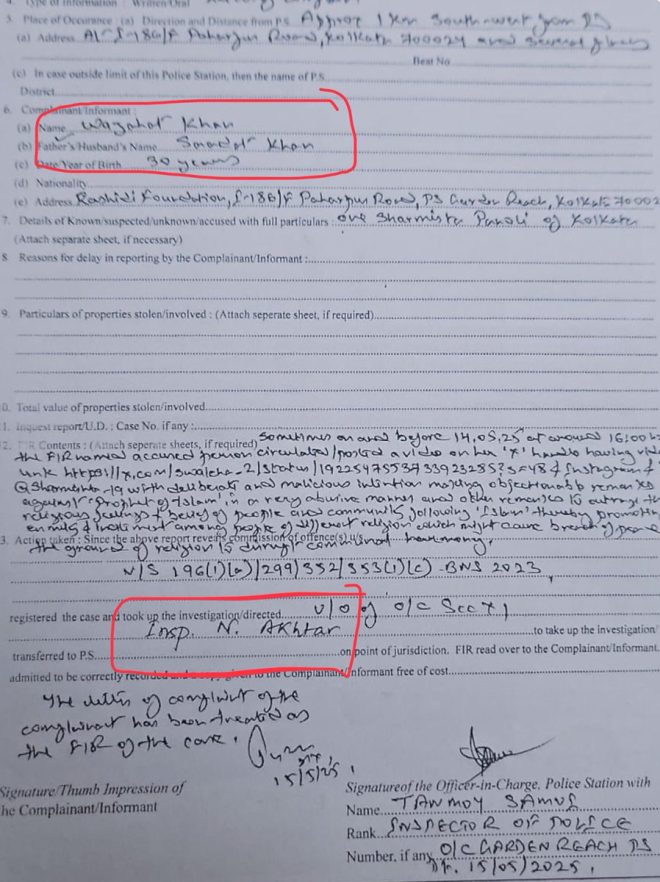 4. Type of Information : Written/Oral
5. Place of Occurance : (a) Direction and Distance from P.S. Approx 1 Km South West from PS
(a) Address Al-I-186/F Paharpur Road, Kolkata 700024 and several places
Beat No
(c) In case outside limit of this Police Station, then the name of P.S.
District
6. Complainant/Informant :
(a) Name Wazahat Khan
(b) Father's/Husband's Name Saadat Khan
(c) Date/Year of Birth 30 years
(d) Nationality
(e) Address Rashidi Foundation, I-186/F Paharpur Road, PS Garden Reach, Kolkata 70002
7. Details of Known/suspected/unknown/accused with full particulars : one Sharmista Panoli of Kolkata
(Attach separate sheet, if necessary)
8. Reasons for delay in reporting by the Complainant/Informant :
9. Particulars of properties stolen/involved : (Attach seperate sheet, if required)
0. Total value of properties stolen/involved
1. Inquest report/U.D. : Case No. if any :
2. FIR Contents : (Attach seperate sheets, if required) Sometimes on and before 14.05.25 at around 16:00
the FIR named accused person circulated/posted a video on her 'X' handle having
link https://x.com/ & Instagram
with deliberate and malicious intention making objectionable remarks
against 'Prophet of Islam', in a very abusive manner and other remarks to outrage the
religious feelings & of people and community following 'Islam' thereby promoting
enmity & among people of different religion which might cause breach of peace
3. Action taken : Since the above report reveals commission of offence(s) u/s
the ground of religion communal harmony.
U/S 196(1)(a)/299/352/353(1)(c) BNS 2023,
registered the case and took up the investigation/directed u/o of o/c
Insp. N. Akhtar to take up the investigation
transferred to P.S. on point of jurisdiction. FIR read over to the Complainant/Informant.
admitted to be correctly recorded and a copy given to the Complainant/Informant free of cost
The letter of complaint of the
complainant has been treated as
the FIR of the case.
15/5/25.
Signature/Thumb Impression of
the Complainant/Informant
Signatureof the Officer-in-Charge, Police Station with
Name TANMOY SAMUI
Rank INSPECTOR OF POLICE
Number, if any O/C GARDEN REACH PS
Dt. 15/05/2025.